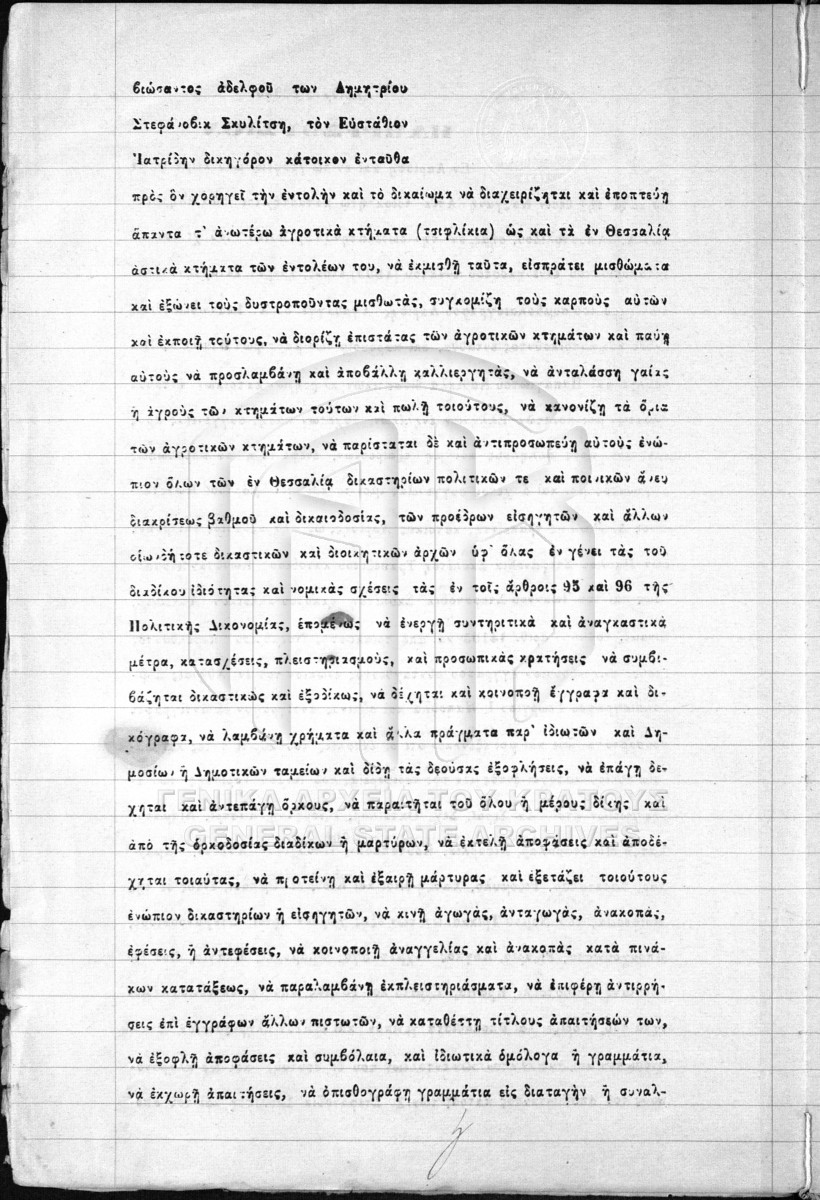 βιώσαντος ἀδελφοῦ των Δημητρίου
Στεφάνοβικ Σκυλίτση, τὸν Εὐστάθιον
Ἰατρίδην δικηγόρον κάτοικον ἐνταῦθα
πρὸς ὃν χορηγεῖ τὴν ἐντολὴν καὶ τὸ δικαίωμα νὰ διαχειρίζηται καὶ ἐποπτεύῃ
ἅπαντα τ' ἀνωτέρω ἀγροτικὰ κτήματα (τσιφλίκια) ὡς καὶ τὰ ἐν Θεσσαλίᾳ
ἀστικὰ κτήματα τῶν ἐντολέων του, νὰ ἐκμισθῇ ταῦτα, εἰσπράτει μισθώματα
καὶ ἐξώνει τοὺς δυστροποῦντας μισθωτὰς, συγκομίζη τοὺς καρποὺς αὐτῶν
καὶ ἐκποιῇ τούτους, νὰ διορίζῃ ἐπιστάτας τῶν ἀγροτικῶν κτημάτων καὶ παύῃ
αὐτοὺς νὰ προσλαμβάνῃ καὶ ἀποβάλλῃ καλλιεργητὰς, νὰ ἀνταλάσσῃ γαίας
ἢ ἀγροὺς τῶν κτημάτων τούτων καὶ πωλῇ τοιούτους, νὰ κανονίζῃ τὰ ὅρια
τῶν ἀγροτικῶν κτημάτων, νὰ παρίσταται δὲ καὶ ἀντιπροσωπεύῃ αὐτοὺς ἐνώ-
πιον ὅλων τῶν ἐν Θεσσαλίᾳ δικαστηρίων πολιτικῶν τε καὶ ποινικῶν ἄνευ
διακρίσεως βαθμοῦ καὶ δικαιοδοσίας, τῶν προέδρων εἰσηγητῶν καὶ ἄλλων
οἱωνδήποτε δικαστικῶν καὶ διοικητικῶν ἀρχῶν ὑφ' ὅλας ἐν γένει τὰς τοῦ
διαδίκου ἰδιότητας καὶ νομικὰς σχέσεις τὰς ἐν τοῖς ἄρθροις 95 καὶ 96 τῆς
Πολιτικῆς Δικονομίας, ἑπομένως νὰ ἐνεργῇ συντηριτικὰ καὶ ἀναγκαστικὰ
μέτρα, κατασχέσεις, πλειστηριασμοὺς, καὶ προσωπικὰς κρατήσεις νὰ συμβι-
βάζηται δικαστικῶς καὶ ἐξοδίκως, νὰ δέχηται καὶ κοινοποῇ ἔγγραφα καὶ δι-
κόγραφα, νὰ λαμβάνῃ χρήματα καὶ ἄλλα πράγματα παρ' ἰδιωτῶν καὶ Δη-
μοσίων ἢ Δημοτικῶν ταμείων καὶ δίδῃ τὰς δεούσας ἐξοφλήσεις, νὰ ἐπάγῃ δέ-
χηται καὶ ἀντεπάγῃ ὅρκους, νὰ παραιτῆται τοῦ ὅλου ἢ μέρους δίκης καὶ
ἀπὸ τῆς ὁρκοδοσίας διαδίκων ἢ μαρτύρων, νὰ ἐκτελῇ ἀποφάσεις καὶ ἀποδέ-
χηται τοιαύτας, νὰ προτείνῃ καὶ ἐξαιρῇ μάρτυρας καὶ ἐξετάζει τοιούτους
ἐνώπιον δικαστηρίων ἢ εἰσηγητῶν, νὰ κινῇ ἀγωγὰς, ἀνταγωγὰς, ἀνακοπὰς,
ἐφέσεις, ἢ ἀντεφέσεις, νὰ κοινοποιῇ ἀναγγελίας καὶ ἀνακοπὰς κατὰ πινά-
κων κατατάξεως, νὰ παραλαμβάνῃ ἐκπλειστηριάσματα, νὰ ἐπιφέρῃ ἀντιρρή-
σεις ἐπὶ ἐγγράφων ἄλλων πιστωτῶν, νὰ καταθέττῃ τίτλους ἀπαιτήσεών των,
νὰ ἐξοφλῇ ἀποφάσεις καὶ συμβόλαια, καὶ ἰδιωτικὰ ὁμόλογα ἢ γραμμάτια,
νὰ ἐκχωρῇ ἀπαιτήσεις, νὰ ὀπισθογράφῃ γραμμάτια εἰς διαταγὴν ἢ συναλ-
ΓΕΝΙΚΑ ΑΡΧΕΙΑ ΤΟΥ ΚΡΑΤΟΥΣ
GENERAL STATE ARCHIVES